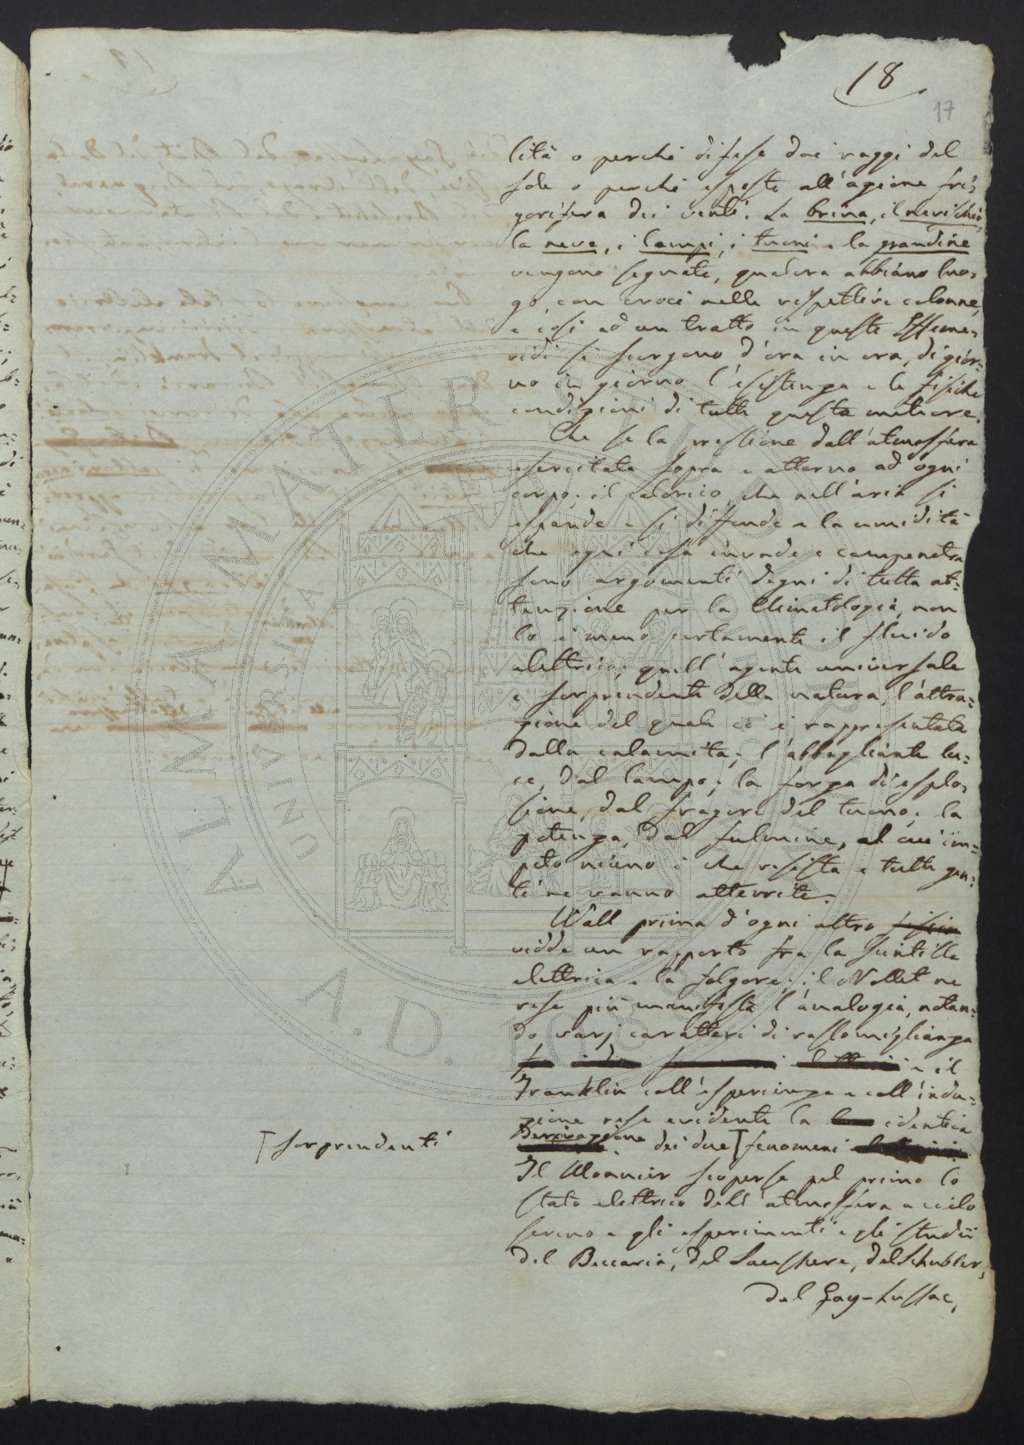 18
17
lità o perché difese dai raggi del
sole o perché esposte all'azione fri-
gorifera dei venti. La brina, il nevischio,
la neve, i lampi, i tuoni e la grandine
vengono segnate, qualora abbiano luo-
go con croci nelle rispettive colonne,
e così ad un tratto in queste Effeme-
ridi si scorgono d'ora in ora, di gior-
no in giorno l'esistenza e le fisiche
condizioni di tutte queste meteore.
Che se la pressione dell'atmosfera
esercitata sopra e attorno ad ogni
corpo, il calorico, che nell'aria si
espande e si diffonde e la umidità
che ogni cosa invade e compenetra
sono argomenti degni di tutta at-
tenzione per la Climatologia, non
lo è meno certamente il fluido
elettrico, quell'agente universale
e sorprendente della natura, l'attra-
zione del quale ci è rappresentata
dalla calamita; l'abbagliante lu-
ce, dal lampo; la forza di esplo-
sione, dal fragore del tuono; la
potenza, dal fulmine, al cui im-
peto niuno è che resista e tutte gen-
ti ne vanno atterrite.
Wall prima d'ogni altro
vidde un rapporto fra la scintilla
elettrica e la folgore; il Nollet ne
rese più manifesta l'analogia, notan-
do varj caratteri di rassomiglianza
e il
Franklin coll'esperienza e coll'indu-
zione rese evidente la identica
Derivazione dei due fenomeni
sorprendenti
Il Monnier scoperse pel primo lo
stato elettrico dell'atmosfera a cielo
sereno e gli esperimenti e gli studii
del Beccaria, del Saussure, del Schubler,
del Gay-Lussac,
ALMA MATER STUDIORUM
UNIVERSITÀ
A.D. 1088